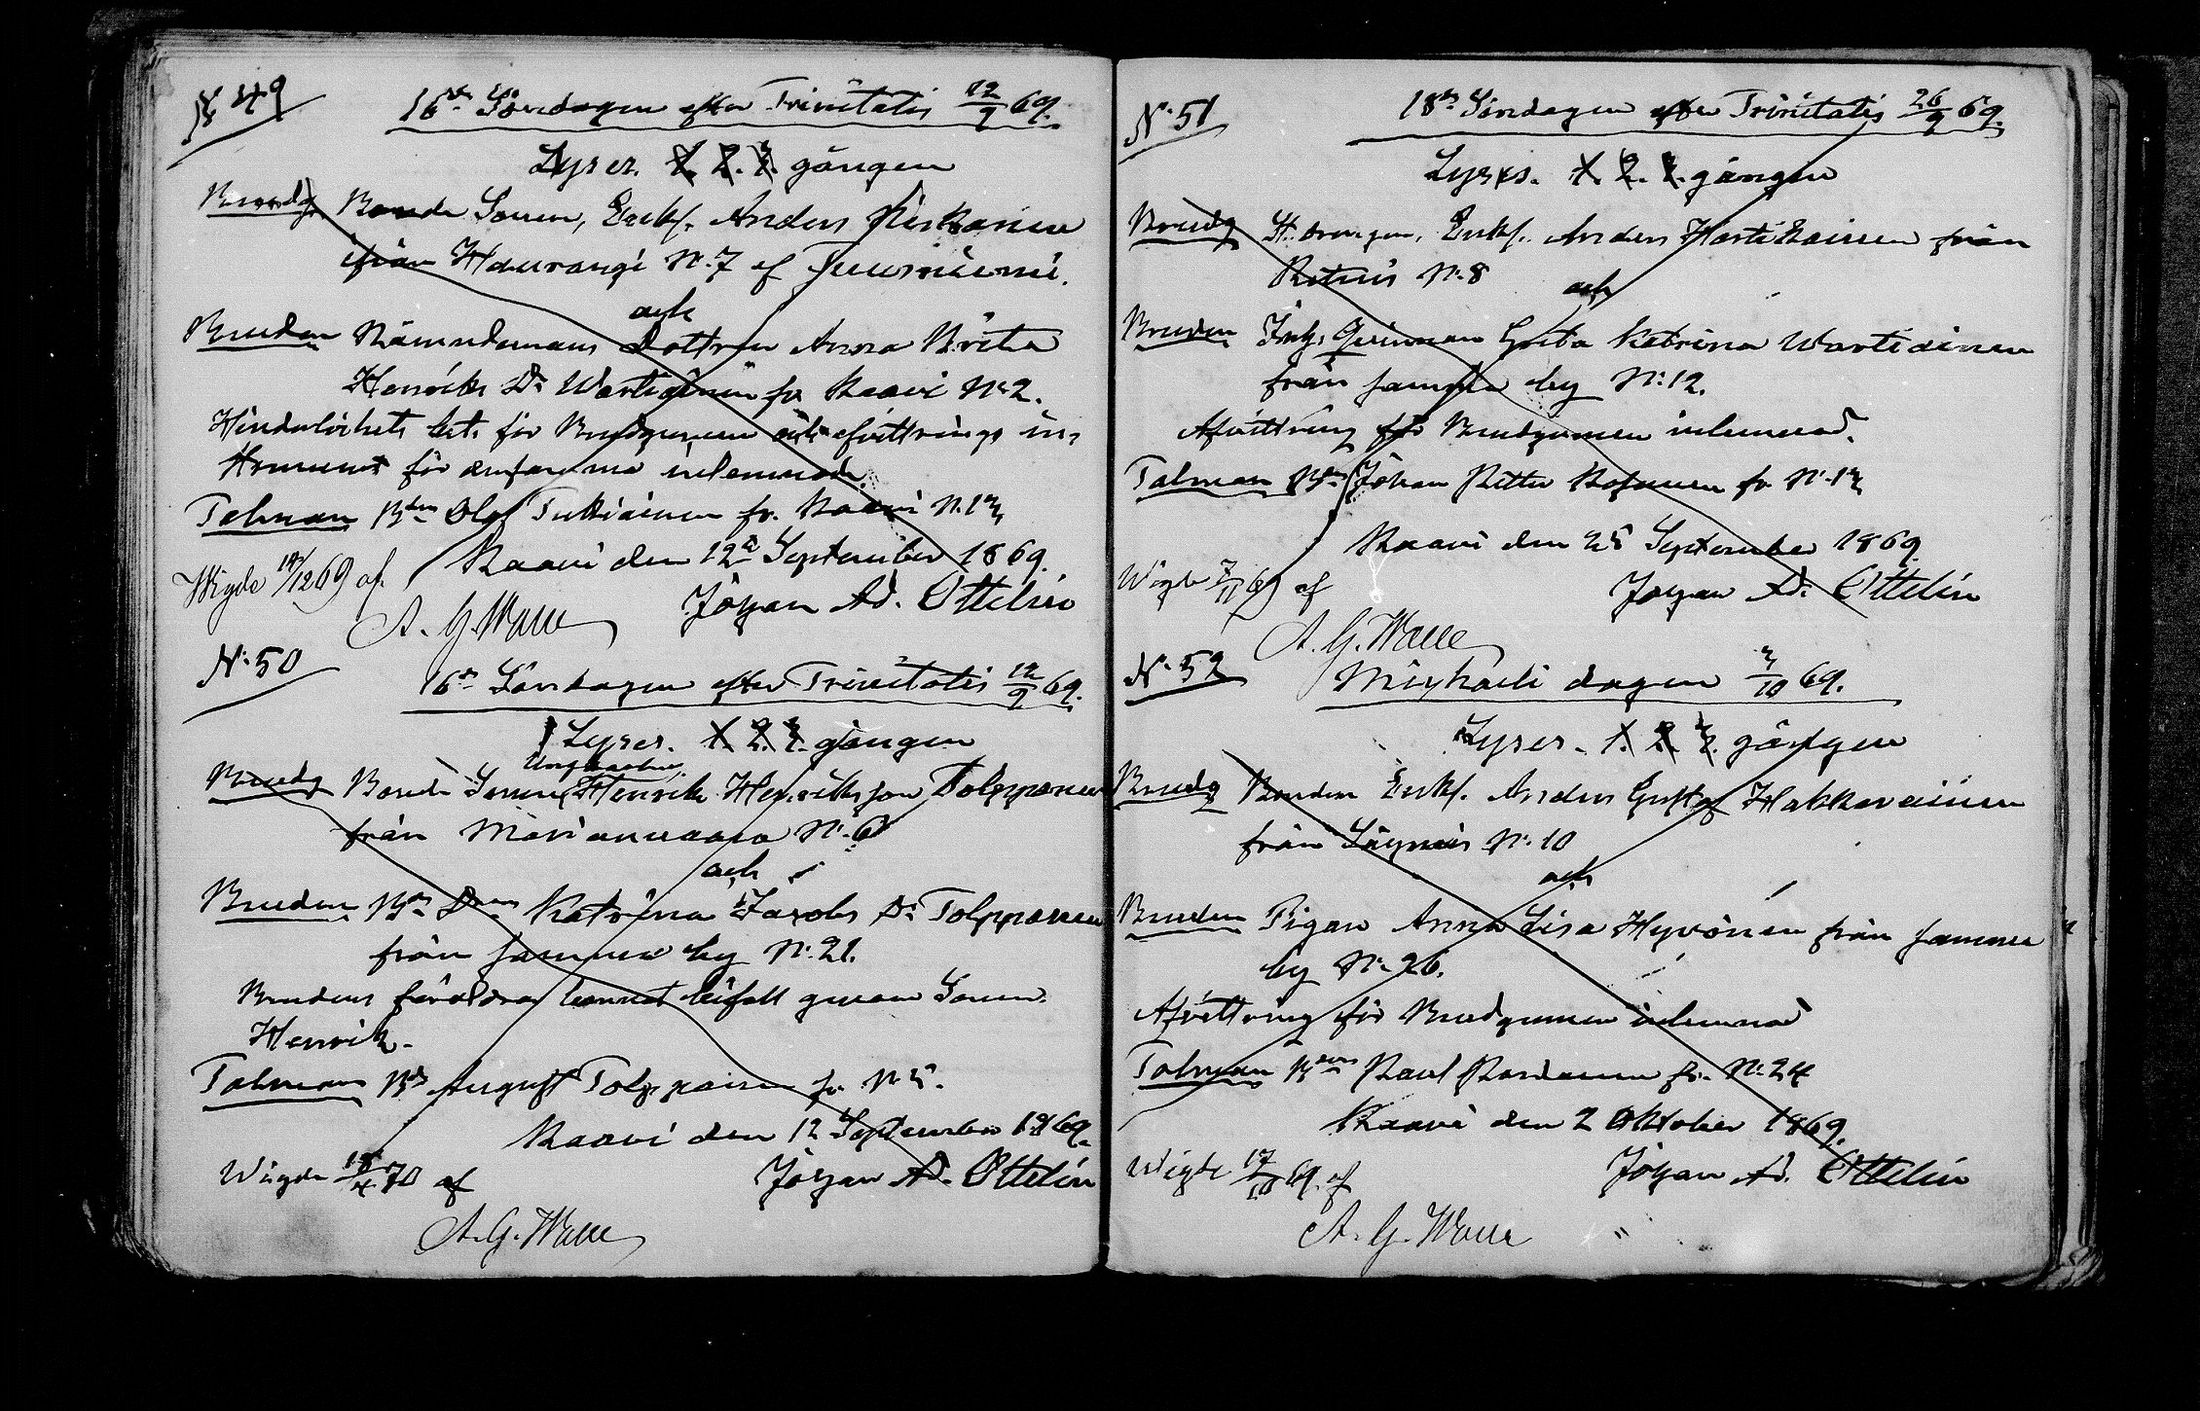 N 49
16de Söndagen efter Trinitatis 12/9 69.
Lyses. 1. 2. 3. gången
Brudg. Bonde Sonen, Enkl. Anders
ifrån Haurangi N:7 af Juurniemi.
och
Bruden Nämndemans Dottren Anna Brita
Henriks Dr Wartiainen fr Kaavi N:2.
Hinderlöshets bet. för Brudgumen och afvittrings in-
strument för densamma inlemnade.
Talman Bdn Olof Tukiainen fr. Kaavi N. 13
Kaavi den 12 September 1869.
Wigde 19/12 69 af Johan Ad. Ottelin
A. G. Walle
N:50
16de Söndagen efter Trinitatis 12/9 69.
Lyses. 1. 2. 3. gången
Ungkarlen
Brudg Bonde Sonen Henrik Henriksson Tolppanen
från Marianvaara N:6
och
Bruden Katrina Jacobs Dr Tolppanen
från samma by N:21.
Brudens föräldrar bifall Sonen
Henrik.
Talman August Tolppanen fr N 5.
Kaavi den 12 September 1869.
Wigde 18/4 70 af Johan Ad. Ottelin
A. G. Walle
N:51
18de Söndagen efter Trinitatis 26/9 69.
Lyses. 1. 2. 3. gången
Brudg drengen, Enkl. Anders Hartikainen från
Retunis N:8
och
Bruden Inh. Qvinnan Greta Katrina Wartiainen
från samma by N:12.
Afvittring för Brudgumen inlemnad.
Talman Johan Petter Kofanen fr N. 13
Kaavi den 25 September 1869
Wigde 7/11 69 af Johan Ad. Ottelin
A. G. Walle
N:52
Michaeli dagen 3/10 69.
Lyses. 1. 2. 3. gången
Brudg Bonden Enkl. Anders Gustaf Hakkarainen
från Säynnis N:10
och
Bruden Pigan Anna Lisa Hyvönen från samma
by N:26.
Afvittring för Brudgumen inlemnad
Talman Paul fr. N:24
Kaavi den 2 Oktober 1869.
Wigde 17/10 69 af Johan Ad. Ottelin
A. G. Walle